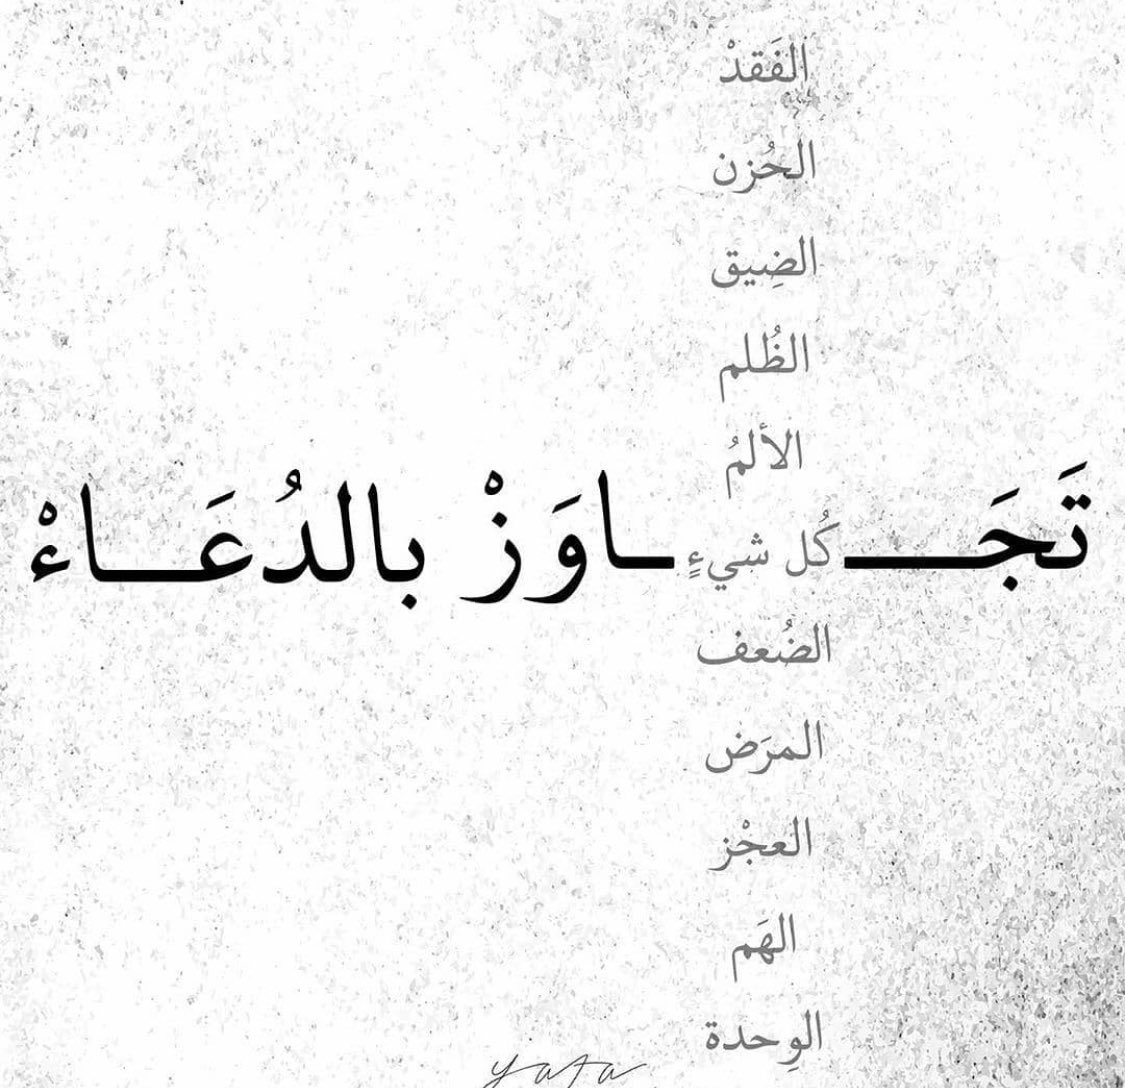 الفَقدْ
الحُزن
الضِيق
الظُلم
الألمُ
تَجَـــــ كُل شيءٍ ـــاوَزْ بالدُعَـــاءْ
الضُعف
المرَض
العجْز
الهَم
الوِحدة
yafa